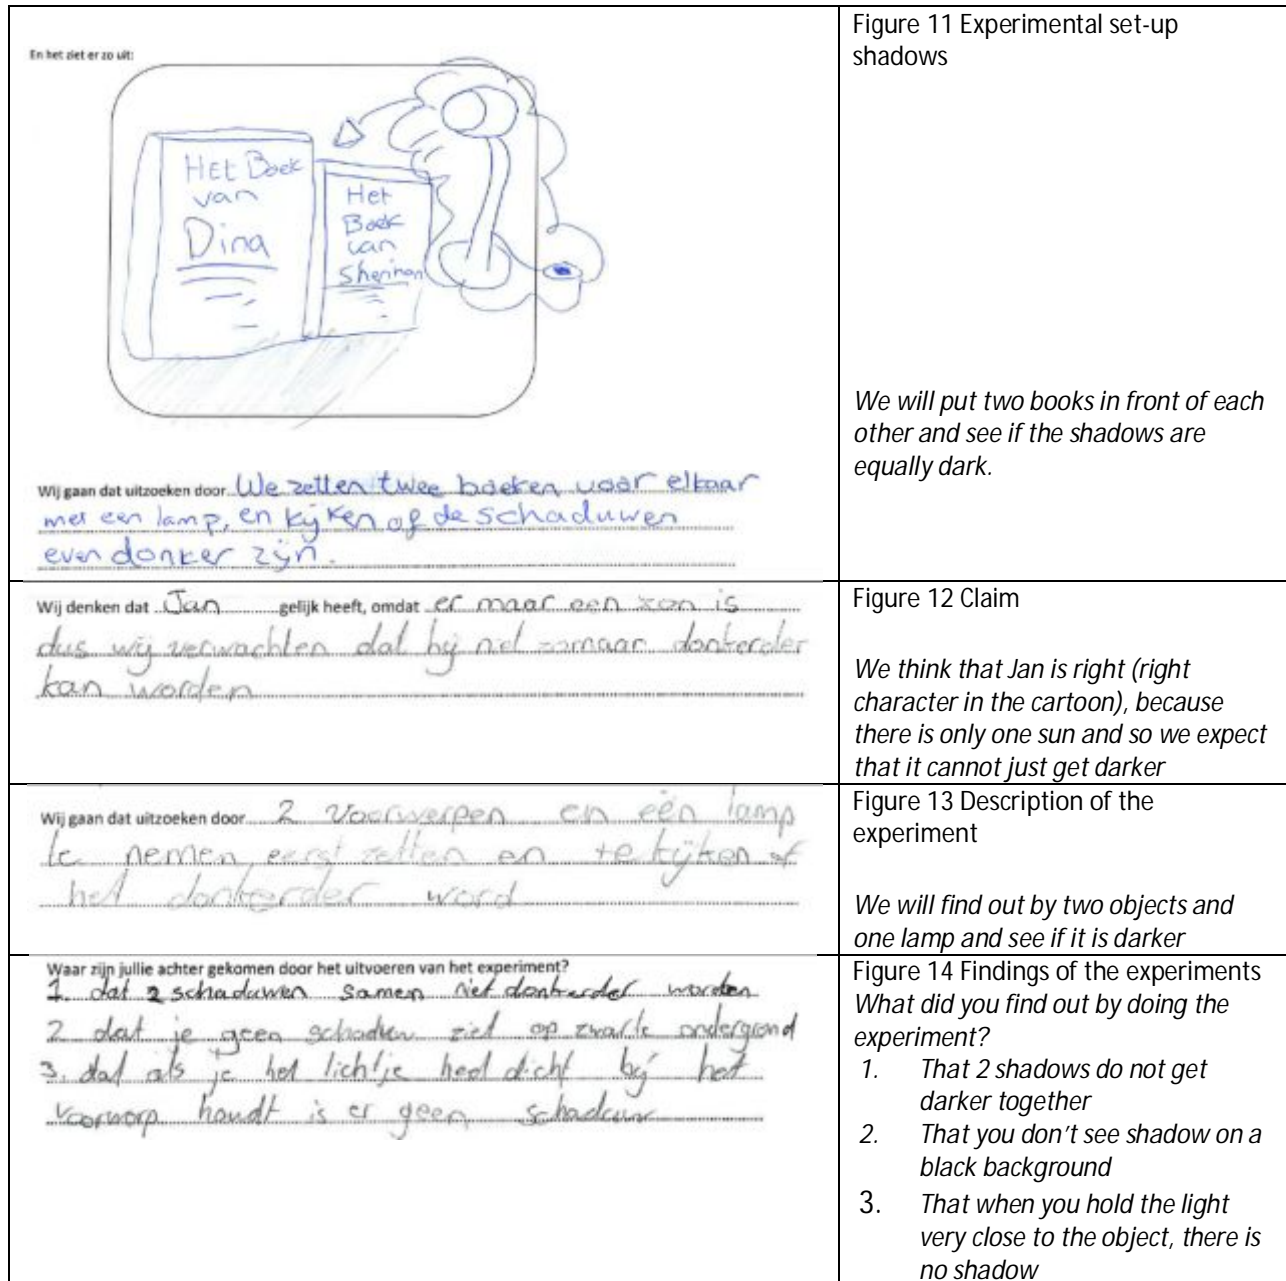 En het ziet er zo uit:
HEt Boek
van
Dina
Het
Boek
van
Wij gaan dat uitzoeken door We zetten twee boeken voor elkaar
met een lamp, en kijken of de schaduwen
even donker zijn.
Figure 11 Experimental set-up
shadows
We will put two books in front of each
other and see if the shadows are
equally dark.
Wij denken dat Jan gelijk heeft, omdat er maar een zon is
dus wij verwachten dat hij niet zomaar donkerder
kan worden
Figure 12 Claim
We think that Jan is right (right
character in the cartoon), because
there is only one sun and so we expect
that it cannot just get darker
Wij gaan dat uitzoeken door 2 Voorwerpen en één lamp
te nemen, eerst zetten en te kijken of
het donkerder word
Figure 13 Description of the
experiment
We will find out by two objects and
one lamp and see if it is darker
Waar zijn jullie achter gekomen door het uitvoeren van het experiment?
1. dat 2 schaduwen samen niet donkerder worden
2 dat je geen schaduw ziet op zwarte ondergrond
3. dat als je het lichtje heel dicht bij het
voorworp houdt is er geen schaduw
Figure 14 Findings of the experiments
What did you find out by doing the
experiment?
1. That 2 shadows do not get
darker together
2. That you don't see shadow on a
black background
3. That when you hold the light
very close to the object, there is
no shadow